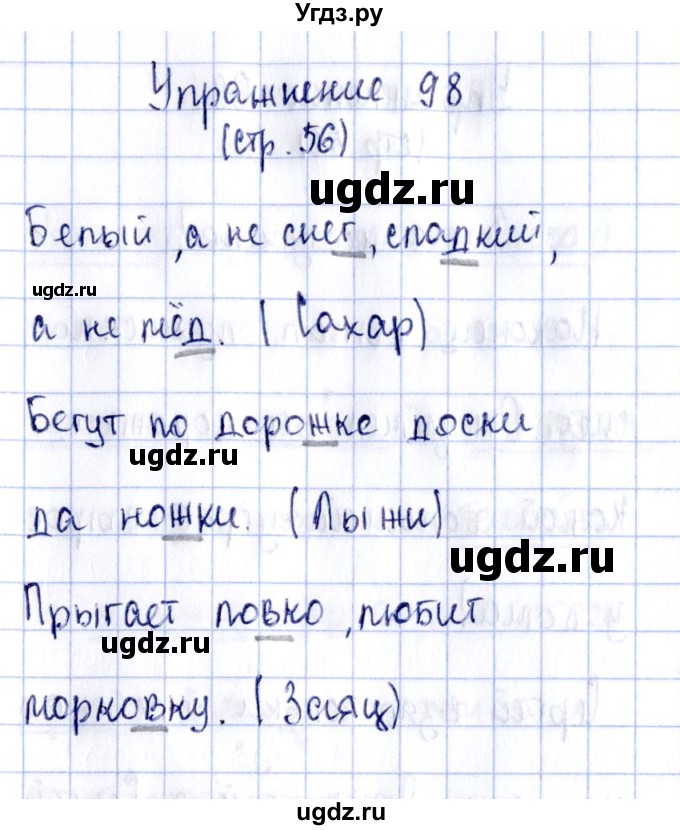 Угдз.ру
Упражнение 98
(стр. 56)
ugdz.ru
Белый, а не снег, сладкий,
ugdz.ru
а не мёд. (Сахар)
Бегут по дорожке доски
ugdz.ru
да ножки. (Лыжи)
ugdz.ru
Прыгает ловко, любит
ugdz.ru
морковку. (Заяц)
ugdz.ru